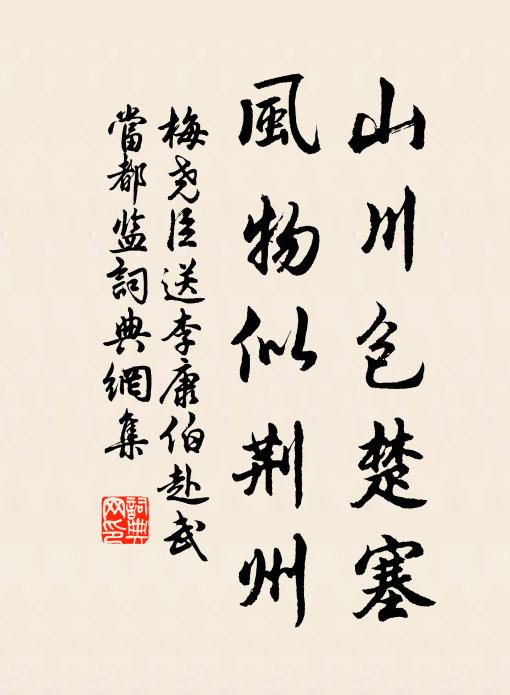 山川包楚塞
風物似荆州
梅尧臣送李康伯赴武
當都监詞典網集
詞典網印